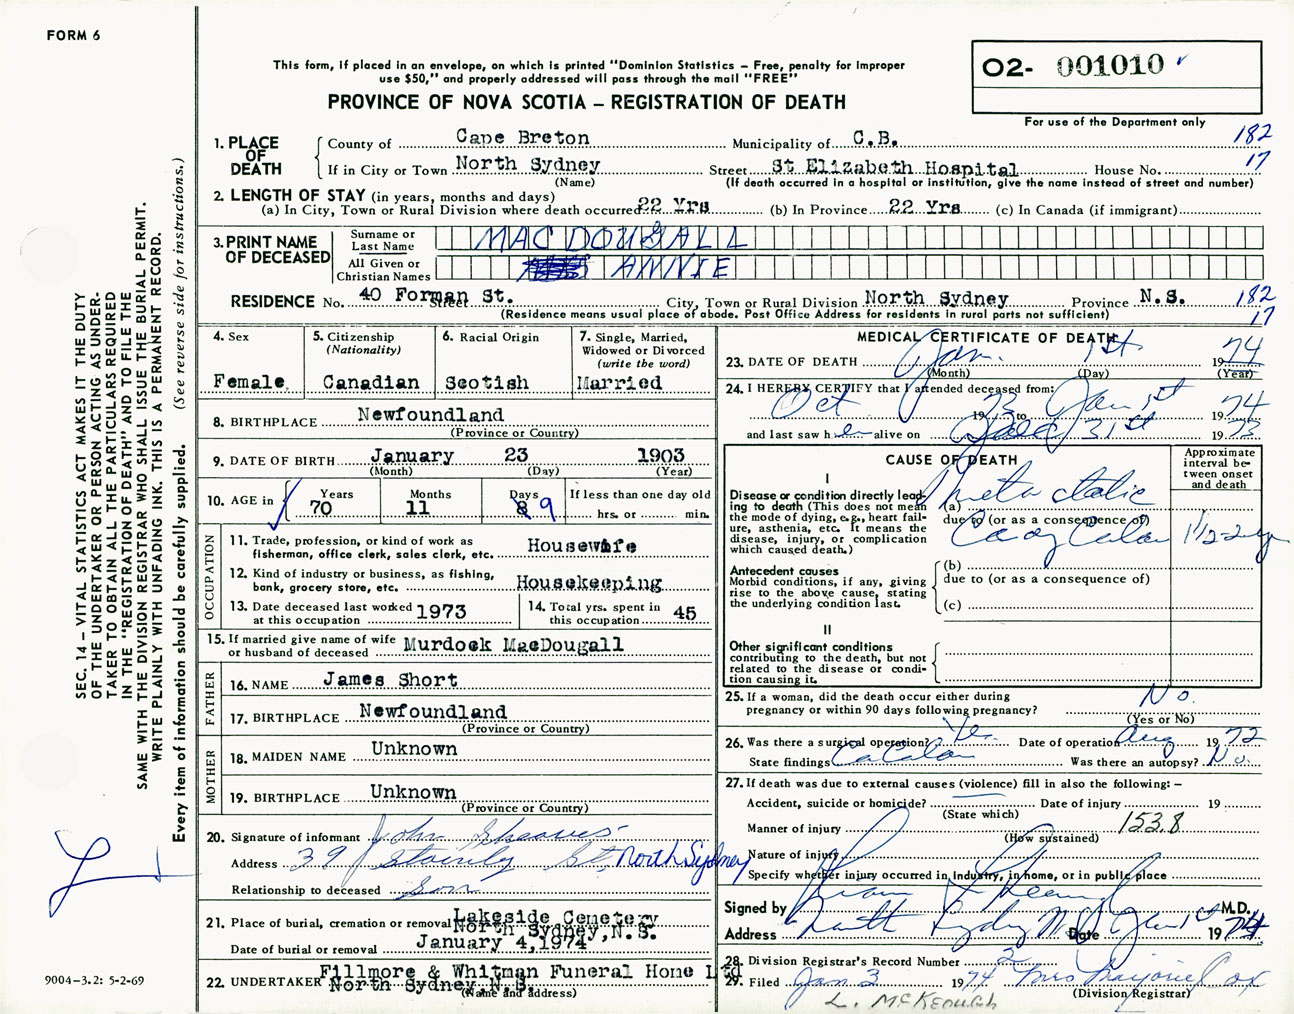 FORM 6
This form, if placed in an envelope, on which is printed "Dominion Statistics – Free, penalty for improper
use $50," and properly addressed will pass through the mail "FREE"
PROVINCE OF NOVA SCOTIA – REGISTRATION OF DEATH
O2- 001010
For use of the Department only
SEC. 14 – VITAL STATISTICS ACT MAKES IT THE DUTY
OF THE UNDERTAKER OR PERSON ACTING AS UNDER-
TAKER TO OBTAIN ALL THE PARTICULARS REQUIRED
IN THE "REGISTRATION OF DEATH" AND TO FILE THE
SAME WITH THE DIVISION REGISTRAR WHO SHALL ISSUE THE BURIAL PERMIT.
WRITE PLAINLY WITH UNFADING INK. THIS IS A PERMANENT RECORD.
Every item of information should be carefully supplied. (See reverse side for instructions.)
1. PLACE OF DEATH
County of Cape Breton Municipality of C.B. 182
If in City or Town North Sydney Street St Elizabeth Hospital House No. 17
(Name) (If death occurred in a hospital or institution, give the name instead of street and number)
2. LENGTH OF STAY (in years, months and days)
(a) In City, Town or Rural Division where death occurred 22 Yrs (b) In Province 22 Yrs (c) In Canada (if immigrant)
3. PRINT NAME OF DECEASED
Surname or Last Name MACDOUGALL
All Given or Christian Names ANNIE
RESIDENCE No. 40 Forman St. Street City, Town or Rural Division North Sydney Province N.S. 182
(Residence means usual place of abode. Post Office Address for residents in rural parts not sufficient) 17
4. Sex
Female
5. Citizenship
(Nationality)
Canadian
6. Racial Origin
Scotish
7. Single, Married,
Widowed or Divorced
(write the word)
Married
8. BIRTHPLACE Newfoundland
(Province or Country)
9. DATE OF BIRTH January 23 1903
(Month) (Day) (Year)
10. AGE in Years Months Days If less than one day old
70 11 8 9 hrs. or min.
OCCUPATION
11. Trade, profession, or kind of work as
fisherman, office clerk, sales clerk, etc. Housewife
12. Kind of industry or business, as fishing,
bank, grocery store, etc. Housekeeping
13. Date deceased last worked
at this occupation 1973
14. Total yrs. spent in
this occupation 45
15. If married give name of wife
or husband of deceased Murdock MacDougall
FATHER
16. NAME James Short
17. BIRTHPLACE Newfoundland
(Province or Country)
MOTHER
18. MAIDEN NAME Unknown
19. BIRTHPLACE Unknown
(Province or Country)
20. Signature of informant John Sheaves
Address 39 St, North Sydney
Relationship to deceased Son
21. Place of burial, cremation or removal Lakeside Cemetery
North Sydney, N.S.
Date of burial or removal January 4, 1974
22. UNDERTAKER Fillmore & Whitman Funeral Home Ltd
North Sydney N.S.
(Name and address)
MEDICAL CERTIFICATE OF DEATH
23. DATE OF DEATH Jan. 1st 1974
(Month) (Day) (Year)
24. I HEREBY CERTIFY that I attended deceased from:
Oct 1973 to Jan 1st 1974
and last saw her alive on Dec 31st 1973
CAUSE OF DEATH
Approximate
interval be-
tween onset
and death
I
Disease or condition directly lead-
ing to death (This does not mean
the mode of dying, e.g., heart fail-
ure, asthenia, etc. It means the
disease, injury, or complication
which caused death.)
(a) Metastatic
due to (or as a consequence of)
Ca of Colon 1 1/2 yr
Antecedent causes
Morbid conditions, if any, giving
rise to the above cause, stating
the underlying condition last.
(b)
due to (or as a consequence of)
(c)
II
Other significant conditions
contributing to the death, but not
related to the disease or condi-
tion causing it.
25. If a woman, did the death occur either during
pregnancy or within 90 days following pregnancy? No
(Yes or No)
26. Was there a surgical operation? Yes Date of operation Aug 1972
State findings Ca Colon Was there an autopsy? No
27. If death was due to external causes (violence) fill in also the following: –
Accident, suicide or homicide? Date of injury 19
(State which)
Manner of injury 153.8
(How sustained)
Nature of injury
Specify whether injury occurred in Industry, in home, or in public place
Signed by M.D.
Address North Sydney N.S. Date Jan 1st 1974
28. Division Registrar's Record Number 2
29. Filed Jan. 3 1974 Mrs Marjorie Cox
(Division Registrar)
L. McKEOUGH
9004-3.2: 5-2-69